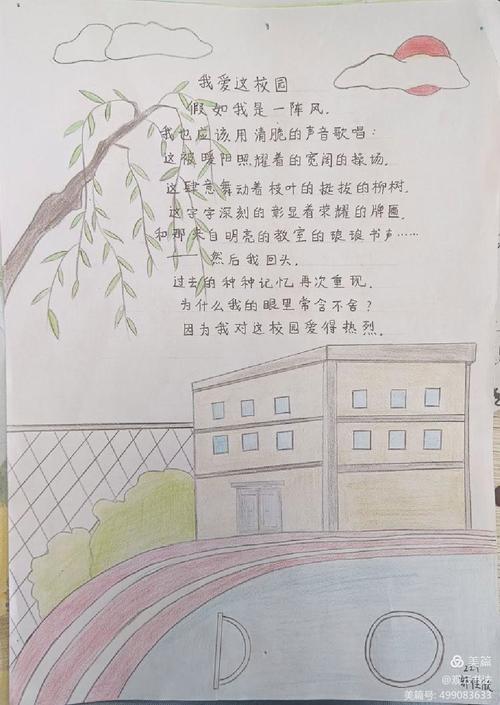 我爱这校园
假如我是一阵风.
我也应该用清脆的声音歌唱：
这被暖阳照耀着的宽阔的操场.
这肆意舞动着枝叶的挺拔的柳树.
这字字深刻的彰显着荣耀的牌匾.
和那来自明亮的教室的琅琅书声……
——然后我回头.
过去的种种记忆再次重现.
为什么我的眼里常含不舍？
因为我对这校园爱得热烈.
221
美篇
美篇号：499083633